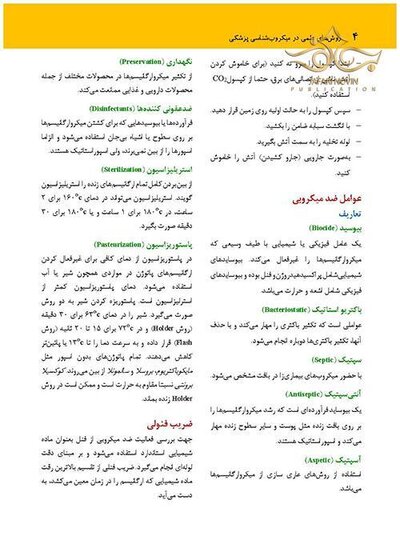 ۴ روش‌های علمی در میکروب‌شناسی پزشکی
PUBLICATION
– ابتدا کپسول را سر و ته کنید (برای خاموش کردن
حتما از کپسول CO2
استفاده کنید).
– سپس کپسول را به حالت اولیه روی زمین قرار دهید.
– با انگشت سبابه ضامن را بکشید.
– لوله تخلیه را به سمت آتش بگیرید.
– به‌صورت جارویی (جارو کشیدن) آتش را خاموش
کنید.
عوامل ضد میکروبی
تعاریف
بیوسید (Biocide)
یک عامل فیزیکی یا شیمیایی با طیف وسیعی که
میکروارگانیسم‌ها را غیرفعال می‌کند. بیوسایدهای
شیمیایی شامل پراکسیدهیدروژن و فنل بوده و بیوسایدهای
فیزیکی شامل اشعه و حرارت می‌باشد.
باکتریو استاتیک (Bacteriostatic)
عواملی است که تکثیر باکتری را مهار می‌کند و با حذف
آنها، تکثیر باکتری‌ها دوباره انجام می‌شود.
سپتیک (Septic)
با حضور میکروب‌های بیماری‌زا در بافت مشخص می‌شود.
آنتی‌سپتیک (Antiseptic)
یک بیوساید فرآورده‌ای است که رشد میکروارگانیسم‌ها را
بر روی بافت زنده مثل پوست و سایر سطوح زنده مهار
می‌کند و اسپور استاتیک هستند.
آسپتیک (Aspetic)
استفاده از روش‌های عاری سازی از میکروارگانیسم‌ها
می‌باشد.
نگهداری (Preservation)
از تکثیر میکروارگانیسم‌ها در محصولات مختلف از جمله
محصولات دارویی و غذایی ممانعت می‌کند.
ضدعفونی کننده‌ها (Disinfectants)
فرآورده‌ها یا بیوسیدهایی که برای کشتن میکروارگانیسم‌ها
بر روی سطوح یا اشیاء بی‌جان استفاده می‌شود و الزاما
اسپورها را از بین نمی‌برند، ولی اسپوراستاتیک هستند.
استریلیزاسیون (Sterilization)
از بین بردن کامل تمام ارگانیسم‌های زنده را استریلیزاسیون
گویند. استریلیزاسیون می‌تواند در دمای ۱۶۰°c برای ۲
ساعت، در ۱۸۰°c برای ۱ ساعت و یا ۱۸۰°c برای ۳۰
دقیقه صورت بگیرد.
پاستوریزاسیون (Pasteurization)
در پاستوریزاسیون از دمای کافی برای غیرفعال کردن
ارگانیسم‌های پاتوژن در مواردی همچون شیر یا آب
استفاده می‌شود. دمای پاستوریزاسیون کمتر از
استرلیزاسیون است. پاستوریزه کردن شیر به دو روش
صورت می‌گیرد. شیر را در دمای ۶۳°c برای ۳۰ دقیقه
(روش Holder) و در ۷۲°c برای ۱۵ تا ۲۰ ثانیه (روش
Flash) قرار داده و به سرعت دما را تا ۱۳°c یا پائین‌تر
کاهش می‌دهند. تمام پاتوژن‌های بدون اسپور مثل
مایکوباکتریوم، بروسلا و سالمونلا از بین می‌روند. کوکسیلا
برونتی نسبتا مقاوم به حرارت است و ممکن است در روش
Holder زنده بماند.
ضریب فنولی
جهت بررسی فعالیت ضد میکروبی از فنل بعنوان ماده
شیمیایی استاندارد استفاده می‌شود و بر مبنای دقت
لوله‌ای انجام می‌گیرد. ضریب فنلی از تقسیم بالاترین رقت
ماده شیمیایی که ارگانیسم را در زمان معین می‌کشد، به
دست می‌آید.